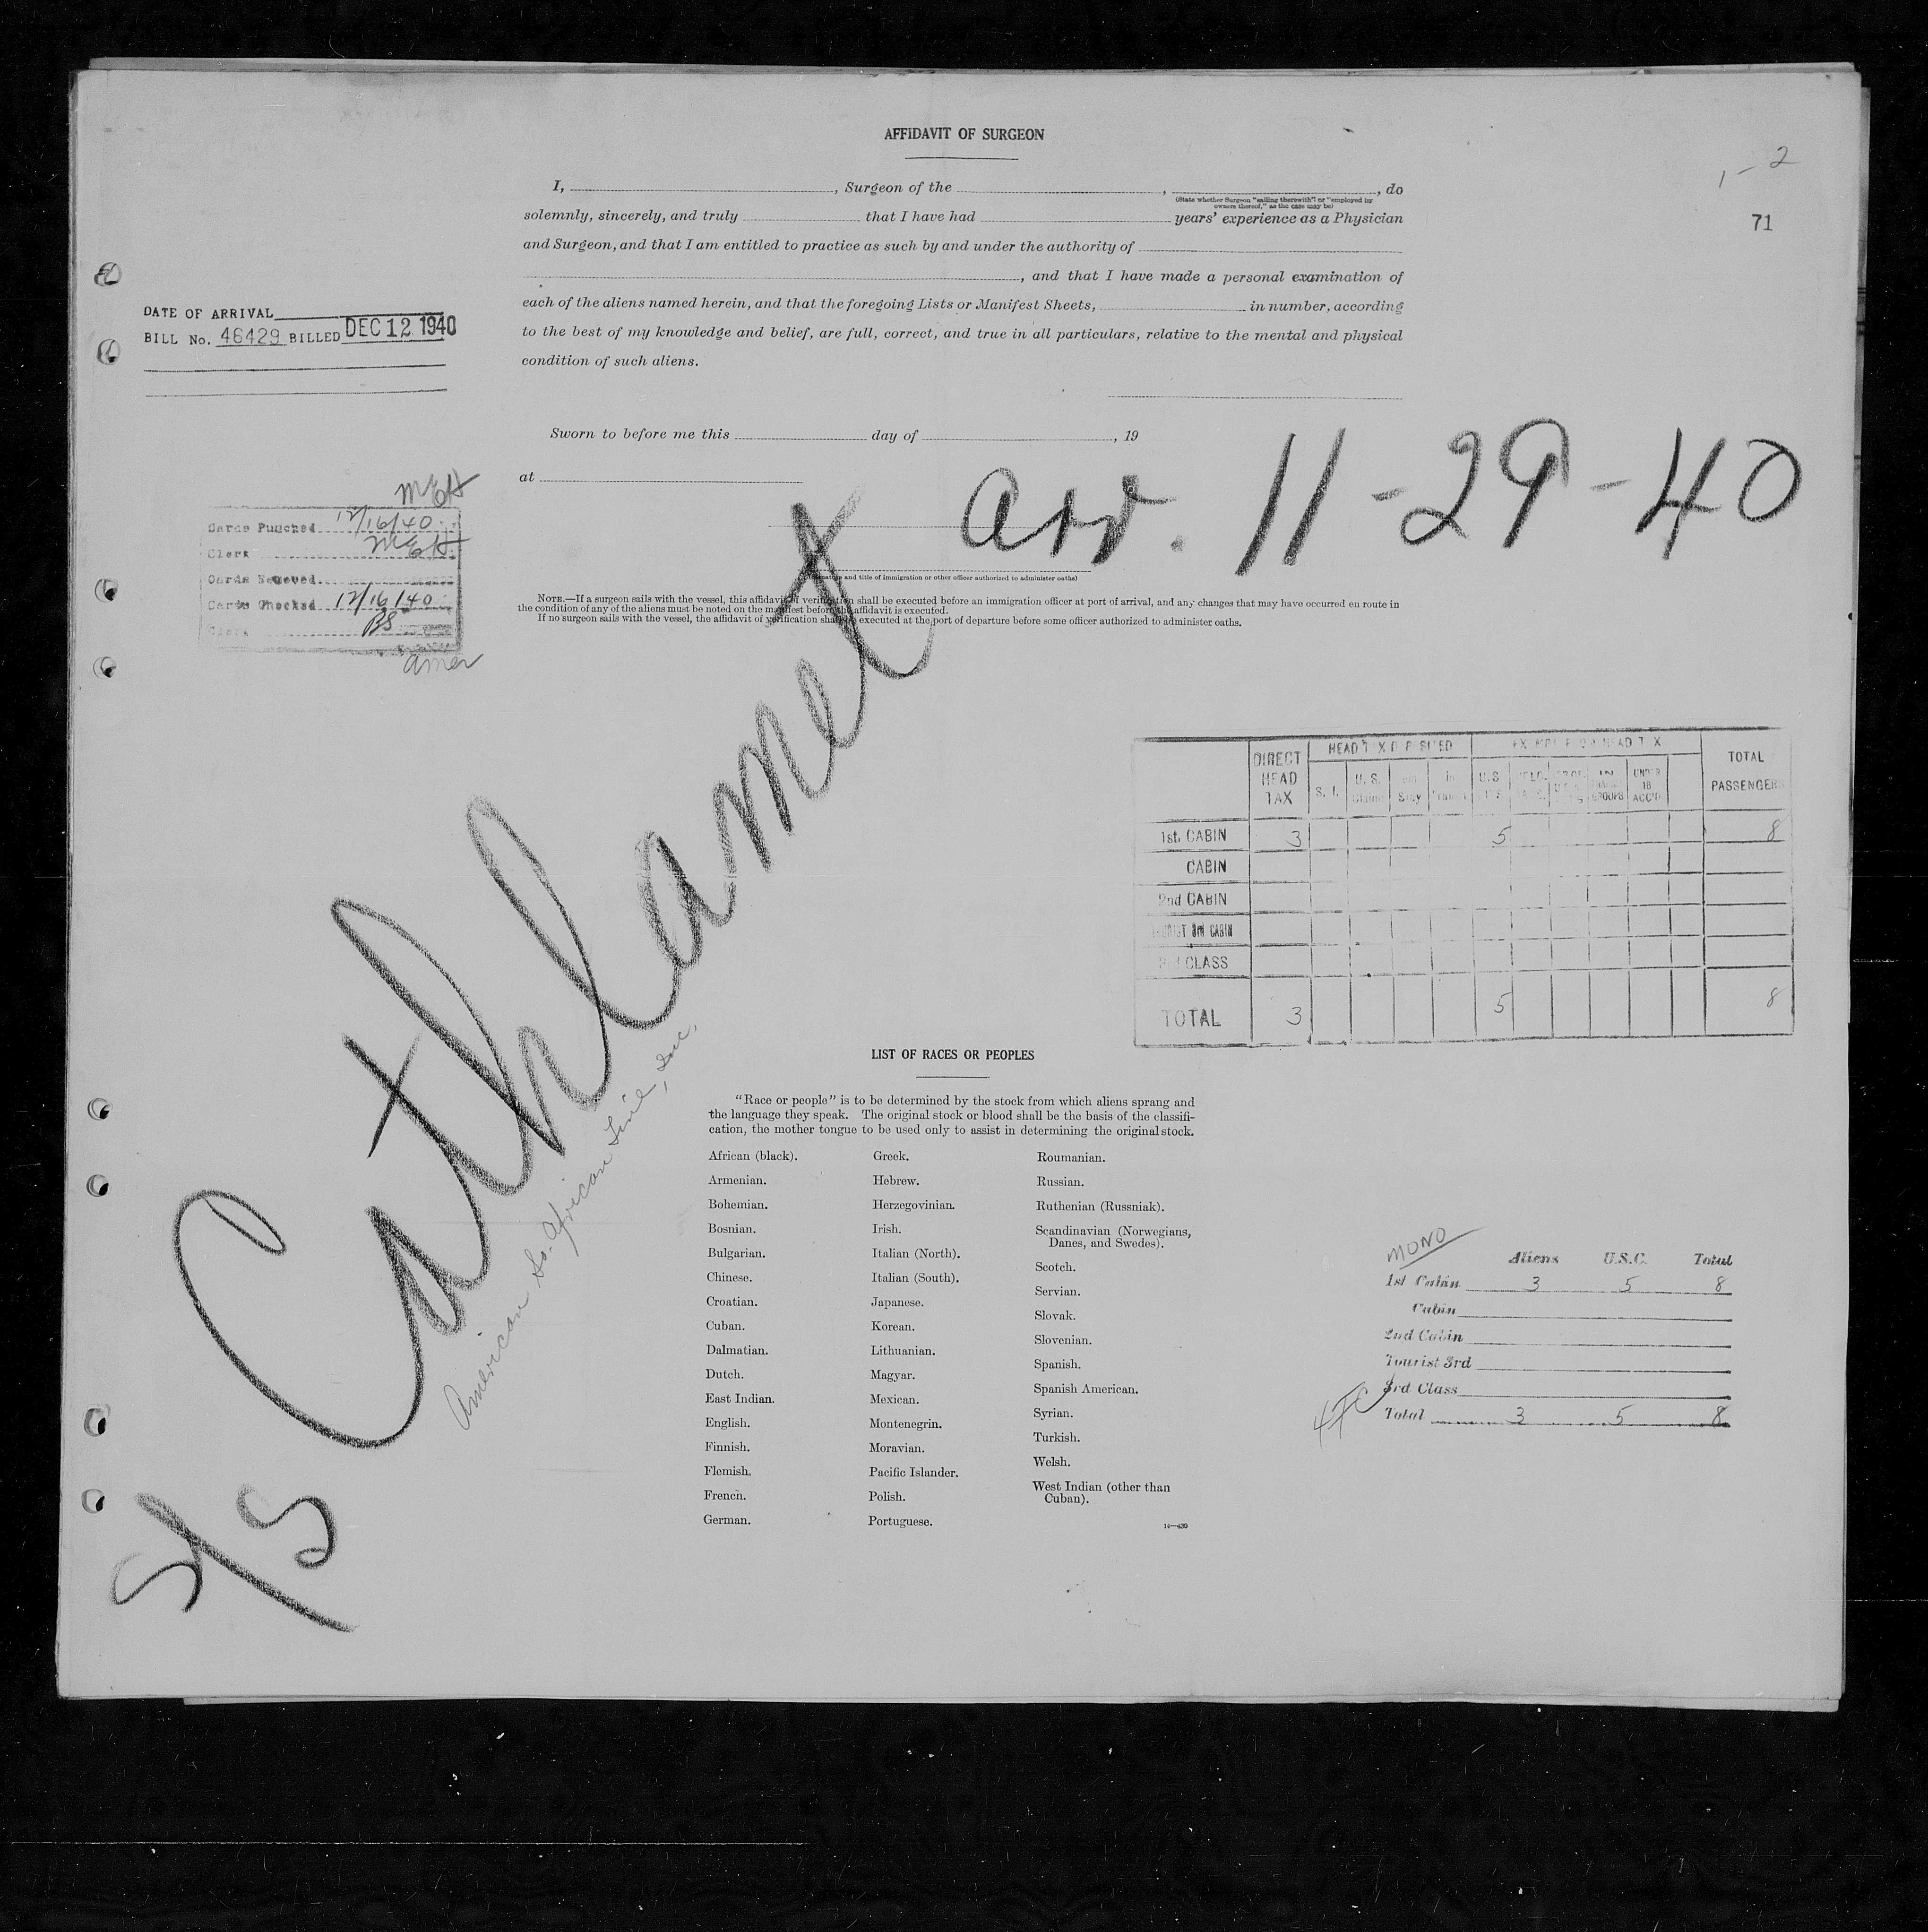 AFFIDAVIT OF SURGEON
1 - 2
71
I, , Surgeon of the , , do
(State whether Surgeon "sailing therewith" or "employed by
owners thereof," as the case may be)
solemnly, sincerely, and truly that I have had years' experience as a Physician
and Surgeon, and that I am entitled to practice as such by and under the authority of
, and that I have made a personal examination of
each of the aliens named herein, and that the foregoing Lists or Manifest Sheets, in number, according
to the best of my knowledge and belief, are full, correct, and true in all particulars, relative to the mental and physical
condition of such aliens.
DATE OF ARRIVAL
BILL No. 46429 BILLED DEC 12 1940
Sworn to before me this day of , 19
at
Arr. 11-29-40
Cards Punched 12/16/40
Clerk
Cards Removed
Cards Checked 12/16/40
Clerk BS
amer
and title of immigration or other officer authorized to administer oaths)
NOTE.—If a surgeon sails with the vessel, this affidavit of verification shall be executed before an immigration officer at port of arrival, and any changes that may have occurred en route in
the condition of any of the aliens must be noted on the manifest before the affidavit is executed.
If no surgeon sails with the vessel, the affidavit of verification shall be executed at the port of departure before some officer authorized to administer oaths.
S/S Cathlamet
American So. African Line, Inc.
DIRECT HEAD TAX
TOTAL PASSENGERS
S. I.
U. S.
1st. CABIN 3 5 8
CABIN
2nd CABIN
TOURIST 3rd CABIN
3rd CLASS
TOTAL 3 5 8
LIST OF RACES OR PEOPLES
"Race or people" is to be determined by the stock from which aliens sprang and
the language they speak. The original stock or blood shall be the basis of the classifi-
cation, the mother tongue to be used only to assist in determining the original stock.
African (black).
Armenian.
Bohemian.
Bosnian.
Bulgarian.
Chinese.
Croatian.
Cuban.
Dalmatian.
Dutch.
East Indian.
English.
Finnish.
Flemish.
French.
German.
Greek.
Hebrew.
Herzegovinian.
Irish.
Italian (North).
Italian (South).
Japanese.
Korean.
Lithuanian.
Magyar.
Mexican.
Montenegrin.
Moravian.
Pacific Islander.
Polish.
Portuguese.
Roumanian.
Russian.
Ruthenian (Russniak).
Scandinavian (Norwegians,
Danes, and Swedes).
Scotch.
Servian.
Slovak.
Slovenian.
Spanish.
Spanish American.
Syrian.
Turkish.
Welsh.
West Indian (other than
Cuban).
MONO
Aliens U.S.C. Total
1st Cabin 3 5 8
Cabin
2nd Cabin
Tourist 3rd
3rd Class
Total 3 5 8